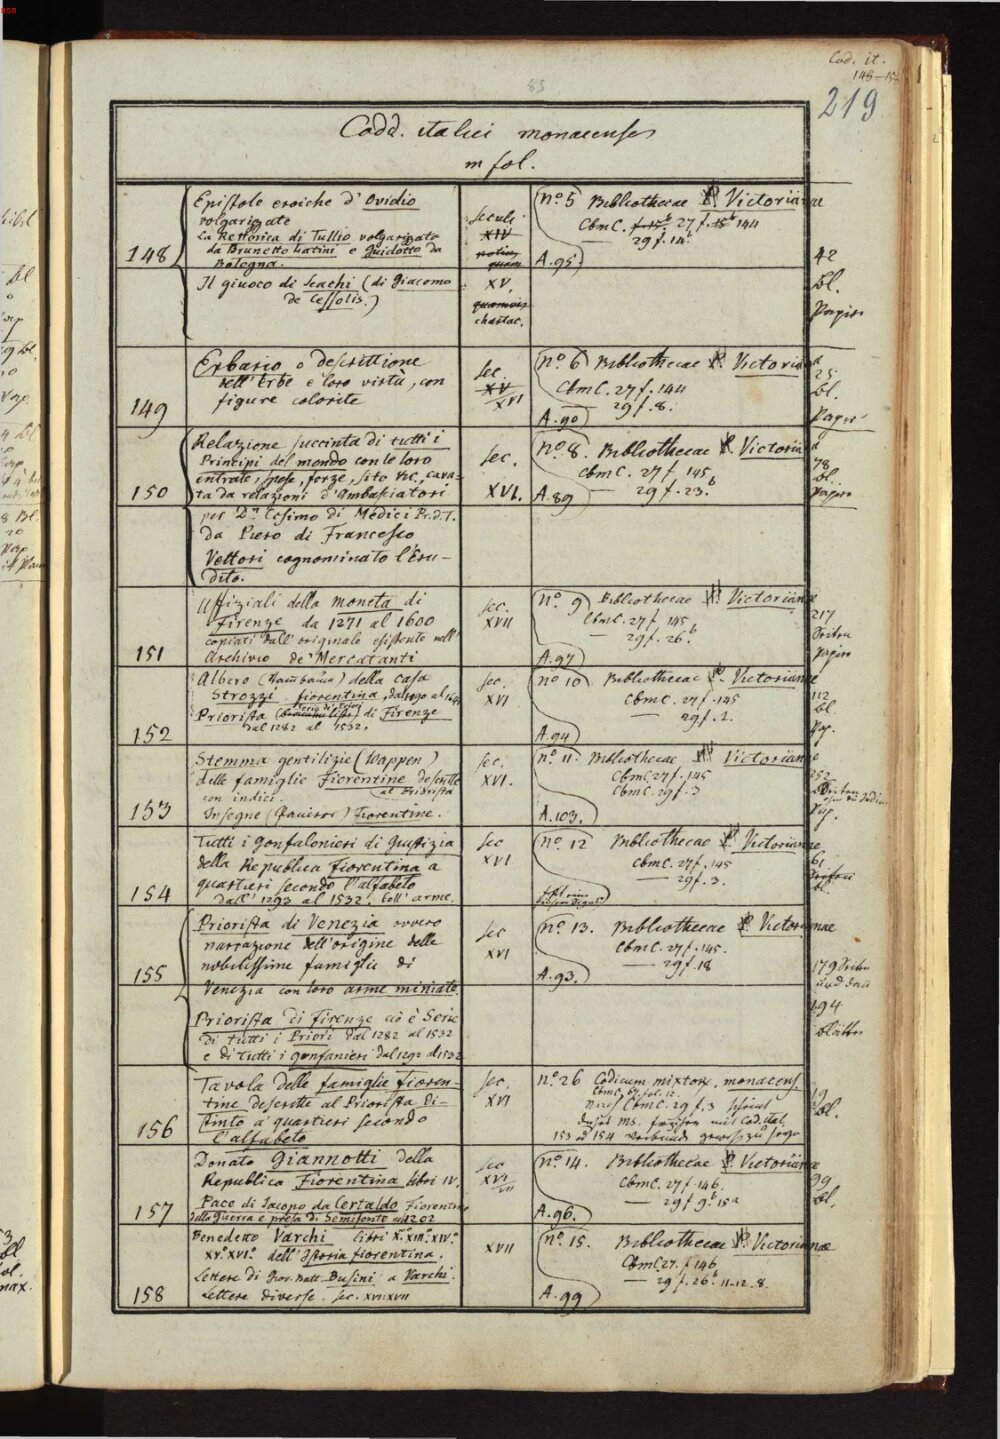 Cod. it.
148-158
219
83
Codd. italici monacenses
in fol.
148
Epistole eroiche d'Ovidio
volgarizzate
La Rettorica di Tullio volgarizzata
da Brunetto Latini e Guidotto da
Bologna.
Il giuoco di Scachi (di Giacomo
de Cessolis.)
seculi
XIV
XV.
quamvis
chartac.
no. 5 Bibliothecae P. Victorianae
CbmC. 27 f. 144
29 f. 14.
A. 95
42
Bl.
Papier
149
Erbario o descrittione
dell'Erbe e loro virtù, con
figure colorite
sec.
XV
XVI
no. 6 Bibliothecae P. Victoriana
CbmC. 27 f. 144
29 f. 8.
A. 90
25
Bl.
Papier
150
Relazione succinta di tutti i
Principi del mondo con le loro
entrate, spese, forze, sito &c., cava-
ta da relazioni d'Ambasiatori
per Dn. Cosimo di Medici Pr. d. T.
da Piero di Francesco
Vettori cognominato l'Eru-
dito.
sec.
XVI.
no. 8. Bibliothecae P. Victoriana
CbmC. 27 f. 145
29 f. 23.b
A. 89
78
Bl.
Papier
151
Uffiziali della moneta di
Firenze da 1271 al 1600
copiati dall'originale esistente nell'
Archivio de' Mercatanti
sec.
XVII
no. 9 Bibliothecae P. Victorianae
CbmC. 27 f. 145
29 f. 26.b
A. 97
217
Seiten
Papier
152
Albero (Stambaum) della casa
Strozzi fiorentina, dal 1090 al
Priorista di Firenze
dal 1282 al 1532.
sec.
XVI
no 10. Bibliothecae P. Victorianae
CbmC. 27 f. 145
29 f. 2.
A. 94
112
Bl.
Pap.
153
Stemma gentilizie (Wappen)
delle famiglie Fiorentine descritte
al Priorista
con indici.
Insegne (Paniere) Fiorentine.
sec.
XVI.
no. 11. Bibliothecae P. Victorianae
CbmC. 27 f. 145
CbmC. 29 f. 3
A. 103.
252
Seiten
Pap.
154
Tutti i Gonfalonieri di Giustizia
della Republica Fiorentina a
quartieri secondo l'alfabeto
dall' 1293 al 1532. coll' arme.
sec
XVI
no. 12 Bibliothecae P. Victorianae
CbmC. 27 f. 145
29 f. 3.
61
Seiten
Bl.
155
Priorista di Venezia ovvero
narrazione dell'origine delle
nobilissime famiglie di
Venezia con loro arme miniate.
Priorista di Firenze ciò è Serie
di tutti i Priori dal 1282 al 1532
e di tutti i gonfanieri dal 1292 al 1532
sec
XVI
no. 13. Bibliothecae P. Victorianae
CbmC. 27 f. 145.
29 f. 18
A. 93.
179 Seiten
und dann
194
Blätter
156
Tavola delle famiglie Fioren-
tine descritte al Priorista di-
stinto a quartieri secondo
l'alfabeto
sec.
XVI
no. 26 Codicum mixtor. monacens.
nach CbmC. 29 f. 3 scheint
dieses Ms. früher mit Cod. ital.
153 od 154 verbunden gewesen zu seyn
19
Bl.
157
Donato Giannotti della
Republica Fiorentina libri IV.
Pace di Jacopo da Certaldo Fiorentino
della guerra e presa di Semifonte nel 1202
sec
XVI
VII
no. 14. Bibliothecae P. Victorianae
CbmC. 27 f. 146.
29 f. 9b 15a
A. 96.
99
Bl.
158
Benedetto Varchi libri X. XIII. XIV.
XV. XVI. dell' Istoria fiorentina.
Lettere di Giov. Batt. Busini a Varchi.
Lettere diverse. sec. XVI. XVII
XVII
no. 15. Bibliothecae P. Victorianae
CbmC. 27. f 146
29 f. 26.b 11. 12. 8.
A. 99